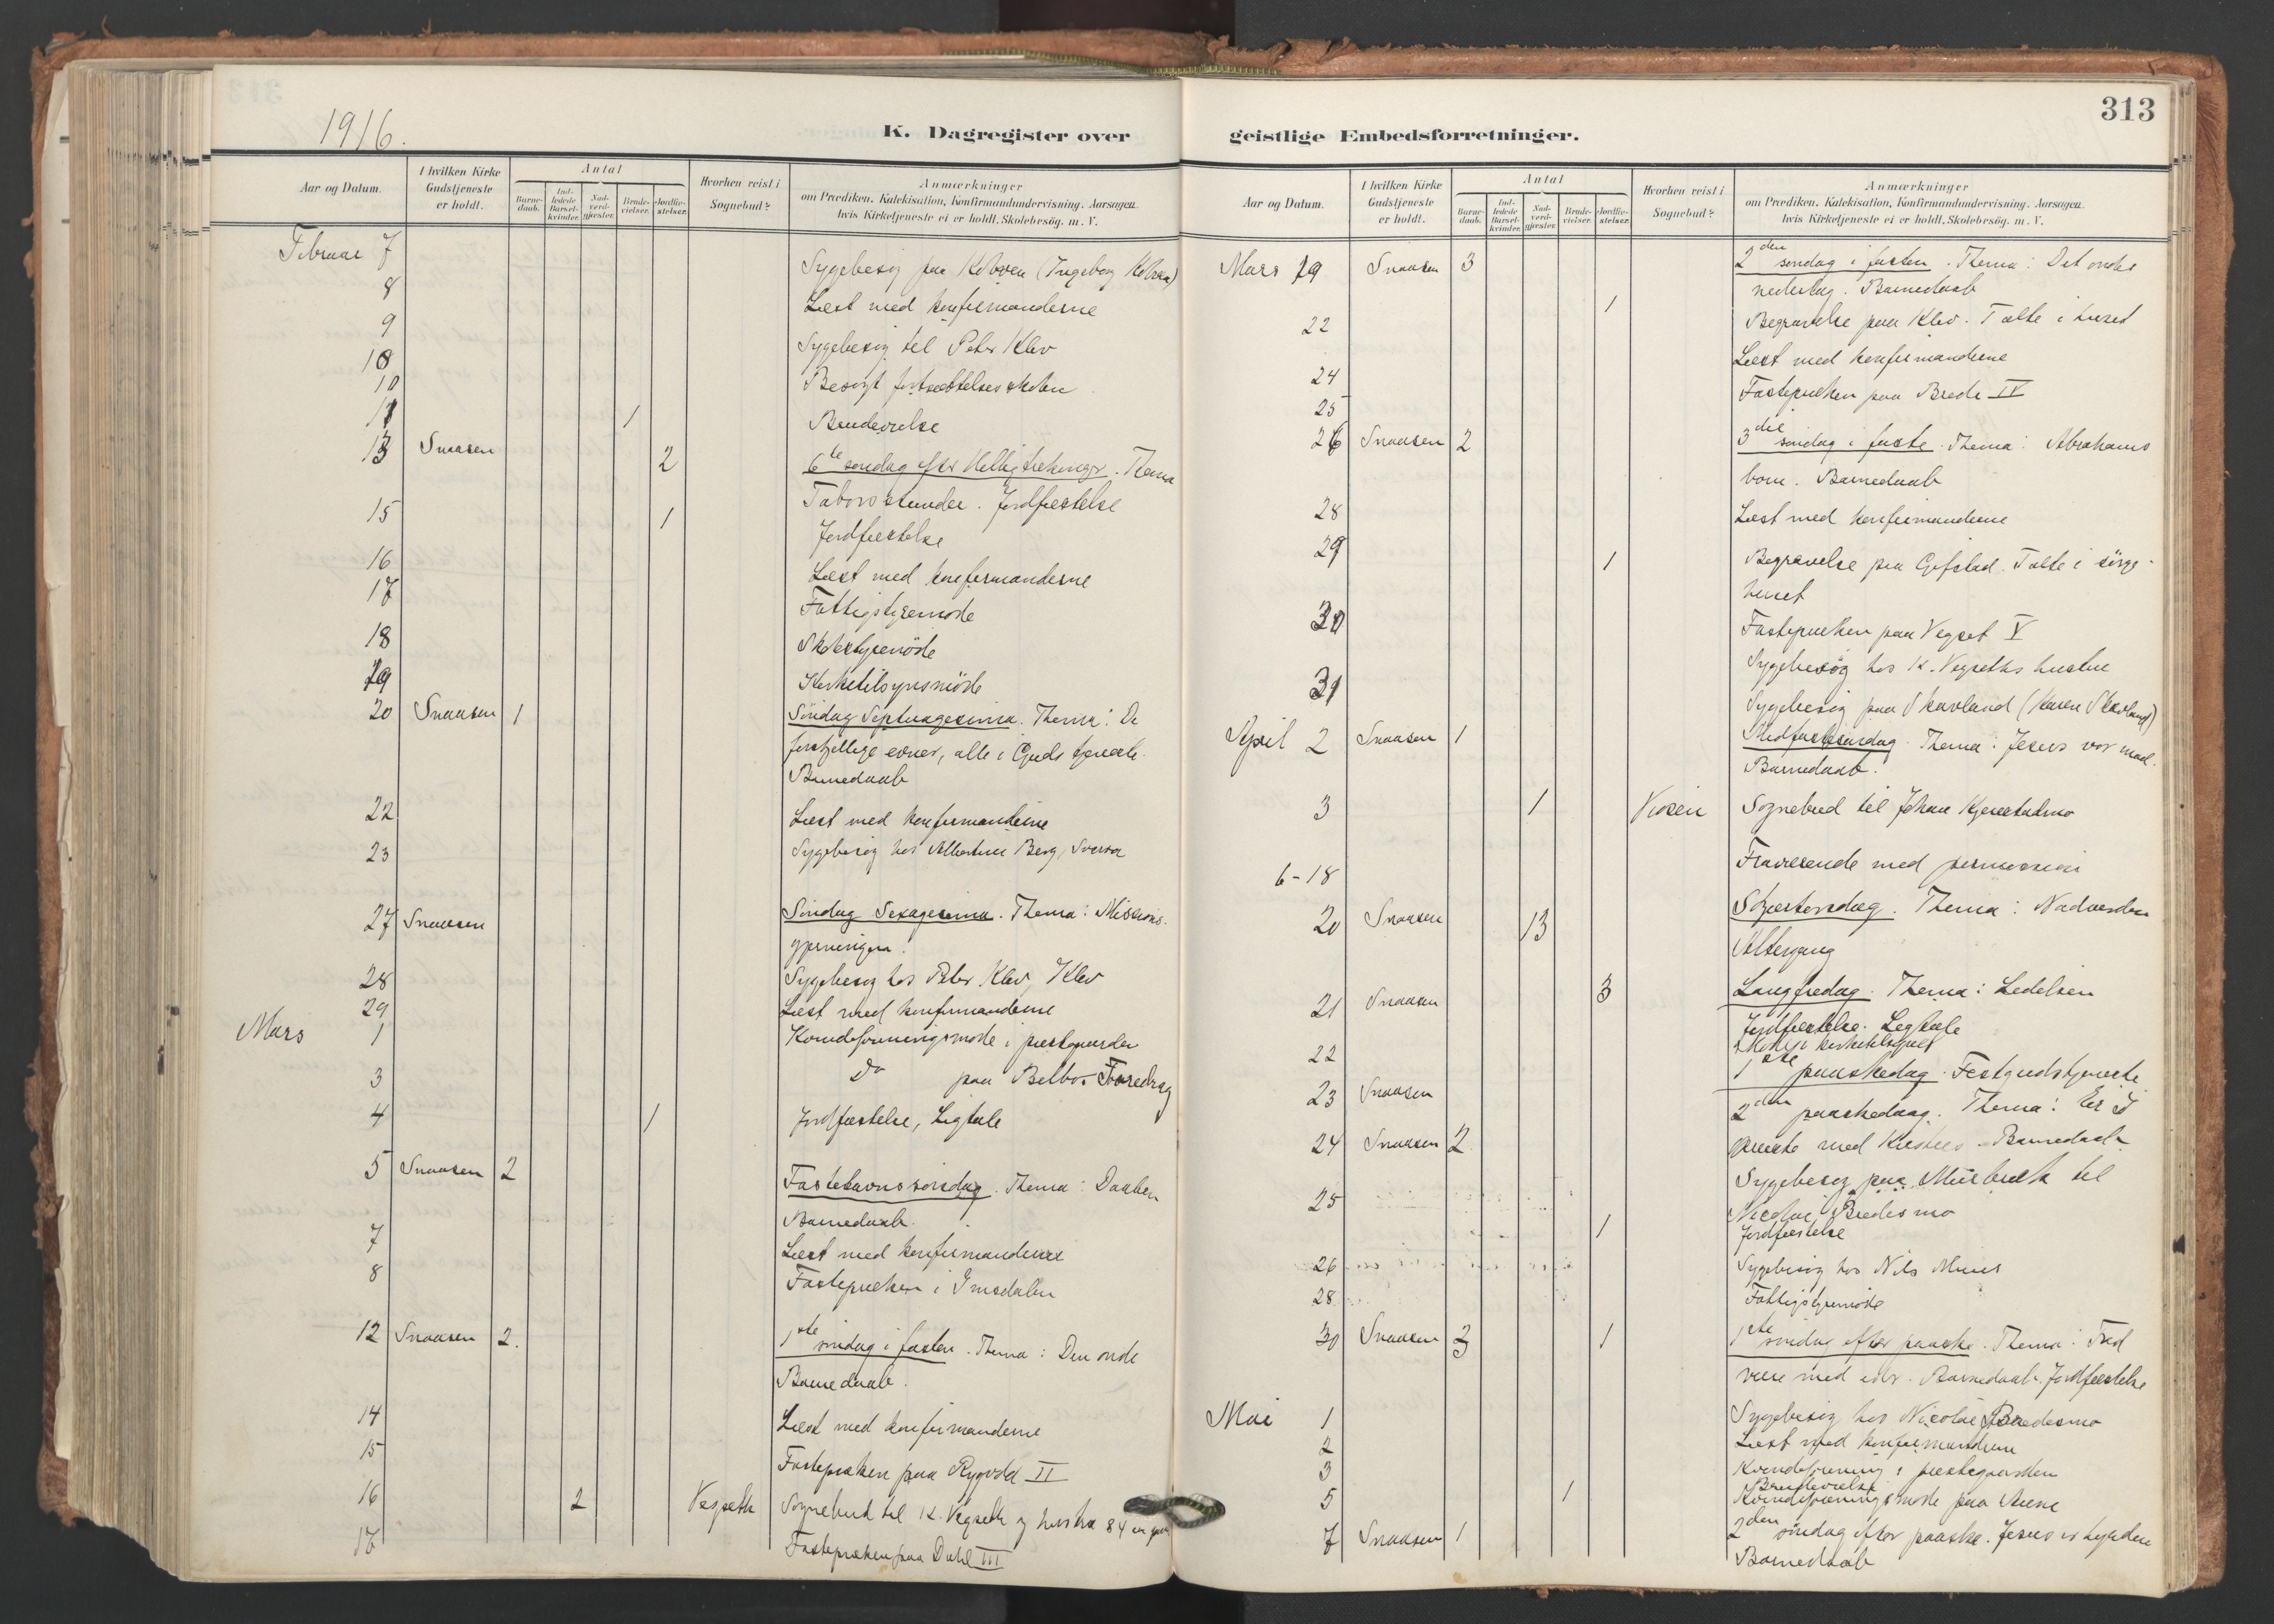 1916.
K. Dagregister over
Aar og Datum.
I hvilken Kirke Gudstjeneste er holdt.
Antal
Barne-daab.
Ind-ledede Barsel-kvinder.
Nad-verd-gjæster.
Brude-vielser.
Jordfæ-stelser.
Hvorhen reist i Sognebud?
Anmærkninger
om Prædiken. Katekisation, Konfirmandundervisning. Aarsagen
hvis Kirketjeneste ei er holdt. Skolebesøg. m. V.
Februar 7 Sygebesøg paa (Ingeborg
8 Læst med konfirmanderne
9 Sygebesøg til Peter Klev
10
10 Besøgt fortsættelsesskolen
11 1 Brudevielse
13 Snaasen 2 6te søndag efter Hellig trekonger. Thema
Taborsstunder. Jordfæstelse
15 1 Jordfæstelse
16 Læst med konfirmanderne
17 Fattigstyremøde
18 Skolestyremøde
19 Kirketilsynsmøde
20 Snaasen 1 Søndag Septuagesima. Thema: De
forskjellige evner, alle i Guds tjeneste.
Barnedaab
22 Læst med konfirmanderne
23 Sygebesøg hos Berg,
27 Snaasen Søndag Sexagesima. Thema: Missions-
gjerningen.
28 Sygebesøg hos Peter Klev, Klev
29 Læst med konfirmanderne
Mars 1 Kvindeforeningsmøde i prestegaarden
3 Do paa Belbo. Foredrag
4 1 Jordfæstelse, Ligtale
5 Snaasen 2 Fastelavnssøndag. Thema: Daaben
Barnedaab.
7 Læst med konfirmanderne
8 Fastepræken i Imsdalen
12 Snaasen 2. 1ste søndag i fasten. Thema: Den onde
Barnedaab.
14 Læst med konfirmanderne
15 Fastepræken paa II
16 2 Vegseth Sognebud til K. Vegseth og hustru 84 aar
17 Fastepræken paa Dahl III
313
geistlige Embedsforretninger.
Aar og Datum.
I hvilken Kirke Gudstjeneste er holdt.
Antal
Barne-daab.
Ind-ledede Barsel-kvinder.
Nad-verd-gjæster.
Brude-vielser.
Jordfæ-stelser.
Hvorhen reist i Sognebud?
Anmærkninger
om Prædiken. Katekisation, Konfirmandundervisning. Aarsagen
hvis Kirketjeneste ei er holdt. Skolebesøg. m. V.
Mars 19 Snaasen 3 2den søndag i fasten. Thema: Det ondes
nederlag. Barnedaab
22 1 Begravelse paa Klev. Talte i huset
Læst med konfirmanderne
24 Fastepræken paa Brede IV
25
26 Snaasen 2 3die søndag i faste. Thema: Abrahams
børn. Barnedaab
28 Læst med konfirmanderne
29 1 Begravelse paa Gifstad. Talte i sørge-
huset
30 Fastepræken paa Vegset V
Sygebesøg hos K. Vegseths hustru
31 Sygebesøg paa Skavland (Karen Skavland)
April 2 Snaasen 1 Midfastesøndag. Thema: Jesus vor mad.
Barnedaab.
3 1 Viosen Sognebud til Johan
6-18 Fraværende med permission
20 Snaasen 13 Skjærtorsdag. Thema: Nadverden
Altergang
21 Snaasen 3 Langfredag. Thema: Lidelsen
Jordfæstelse. Ligtale
22 Møde i kirketilsynet
23 Snaasen 1ste paaskedag. Festgudstjeneste
24 Snaasen 2 2den paaskedag. Thema: Er I
opreiste med Kristus. Barnedaab
25 Sygebesøg paa til
Nicolai Bredesmo
1 Jordfæstelse
26 Sygebesøg hos Nils
28 Fattigstyremøde
30 Snaasen 3 1 1ste søndag efter paaske. Thema: Fred
være med eder. Barnedaab. Jordfæstelse
Mai 1 Sygebesøg hos Nicolai Bredesmo
2 Læst med konfirmanderne
3 Kvindeforening i prestegaarden
5 1 Brudevielse
Kvindeforeningsmøde paa
7 Snaasen 1 2den søndag efter paaske. Jesus er hyrden
Barnedaab